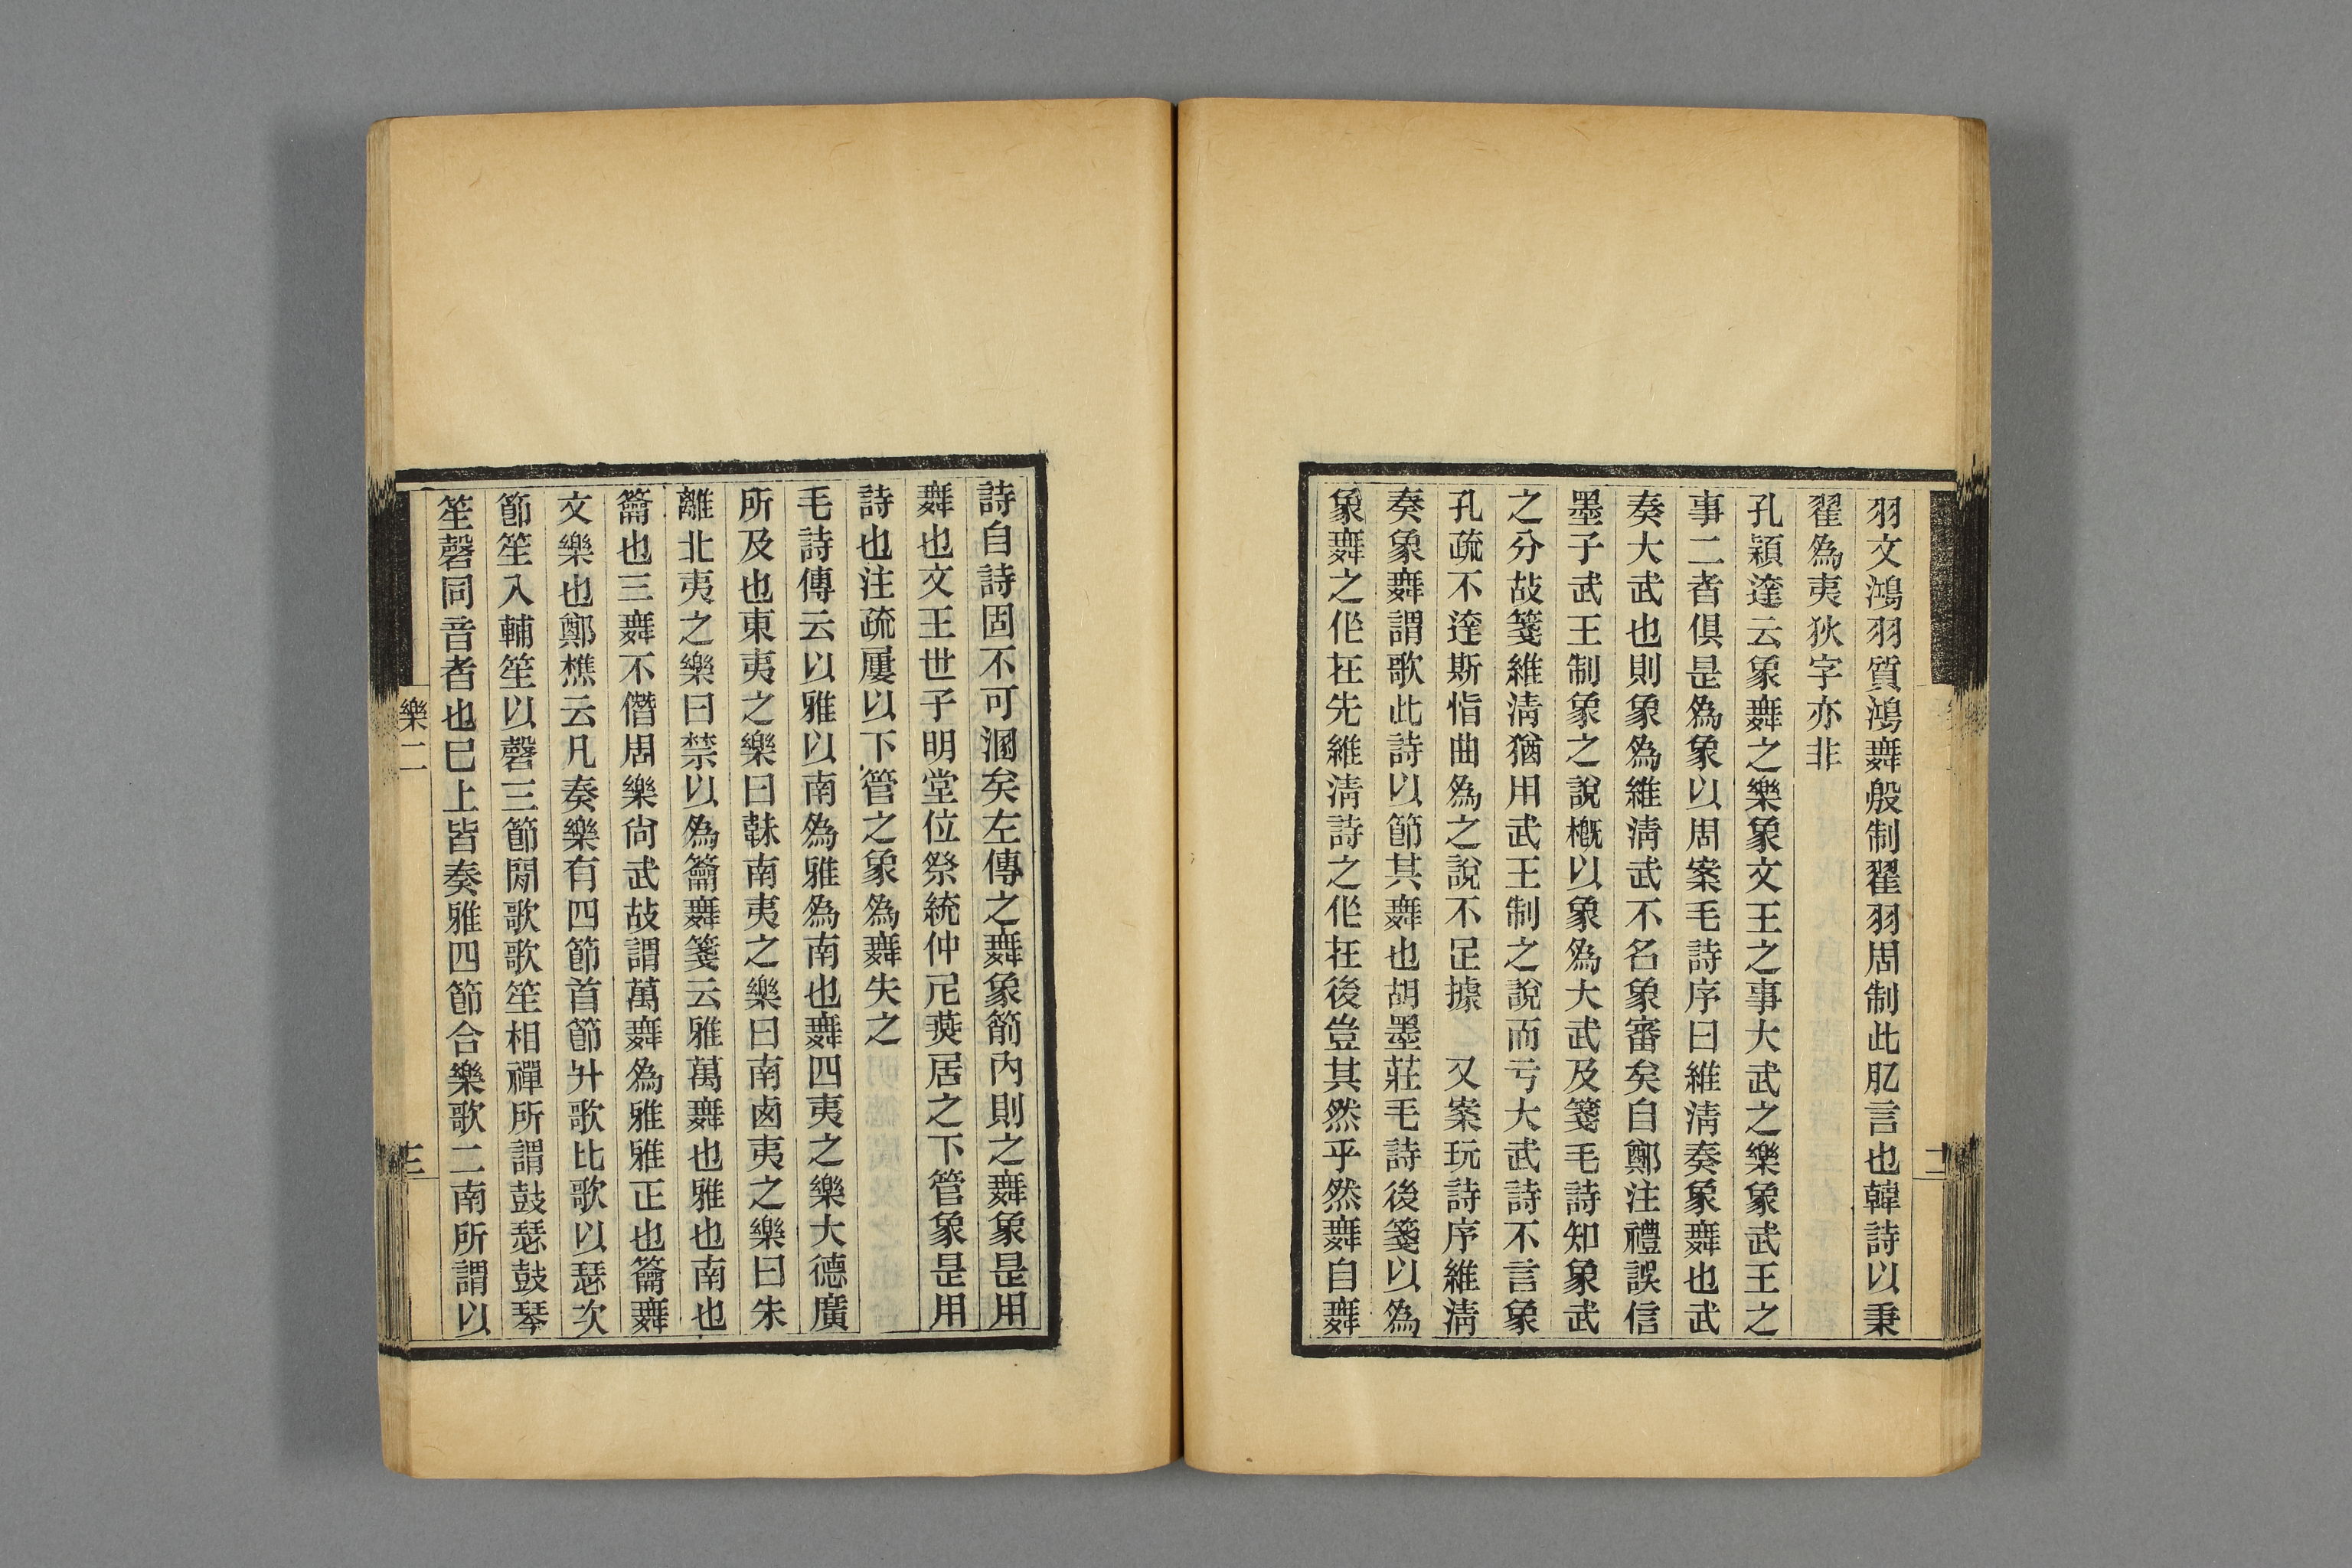 羽文鴻羽質鴻舞殷制翟羽周制此肊言也韓詩以秉
翟爲夷狄字亦非
孔穎達云象舞之樂象文王之事大武之樂象武王之
事二者俱是爲象以周案毛詩序曰維清奏象舞也武
奏大武也則象爲維清武不名象審矣自鄭注禮誤信
墨子武王制象之說槪以象爲大武及箋毛詩知象武
之分故箋維清猶用武王制之說而亏大武詩不言象
孔疏不達斯恉曲爲之說不足據　又案玩詩序維清
奏象舞謂歌此詩以節其舞也胡墨莊毛詩後箋以爲
象舞之作在先維清詩之作在後豈其然乎然舞自舞
詩自詩固不可溷矣左傳之舞象箾內則之舞象是用
舞也文王世子明堂位祭統仲尼燕居之下管象是用
詩也注疏屢以下管之象爲舞失之
毛詩傳云以雅以南爲雅爲南也舞四夷之樂大德廣
所及也東夷之樂曰韎南夷之樂曰南鹵夷之樂曰朱
離北夷之樂曰禁以爲籥舞箋云雅萬舞也雅也南也
籥也三舞不僭周樂尙武故謂萬舞爲雅雅正也籥舞
文樂也鄭樵云凡奏樂有四節首節升歌比歌以瑟次
節笙入輔笙以磬三節閒歌歌笙相禪所謂鼓瑟鼓琴
笙磬同音者也已上皆奏雅四節合樂歌二南所謂以
樂二
三
二